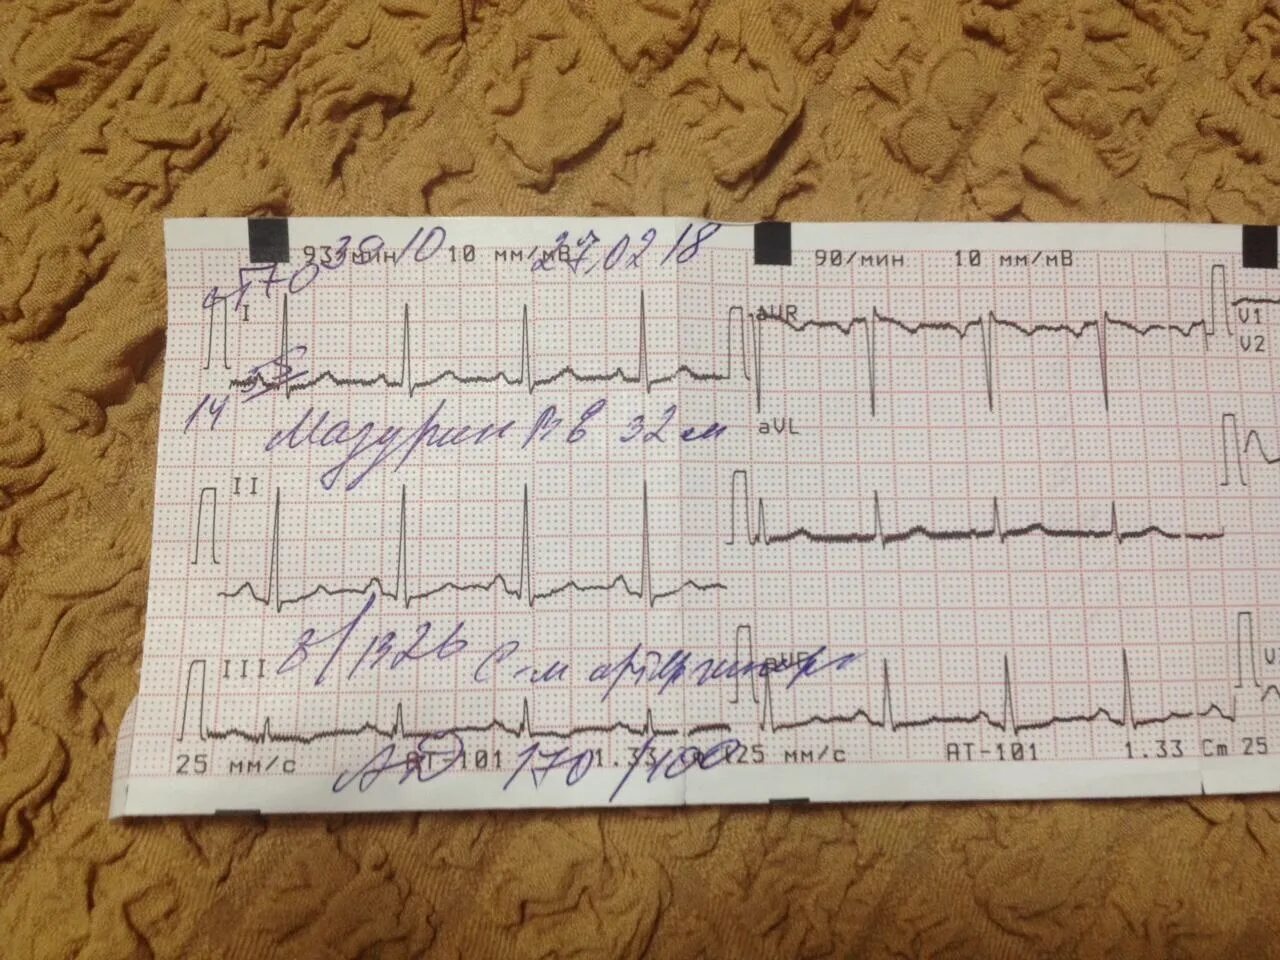 93/мин 10 мм/мВ 90/мин 10 мм/мВ
27.02 18
I aVR V1
V2
14 35
Мазурин В В 32 м
aVL
II
III aVF
АД 170/100
25 мм/с AT-101 1.33 25 мм/с AT-101 1.33 Cm 25